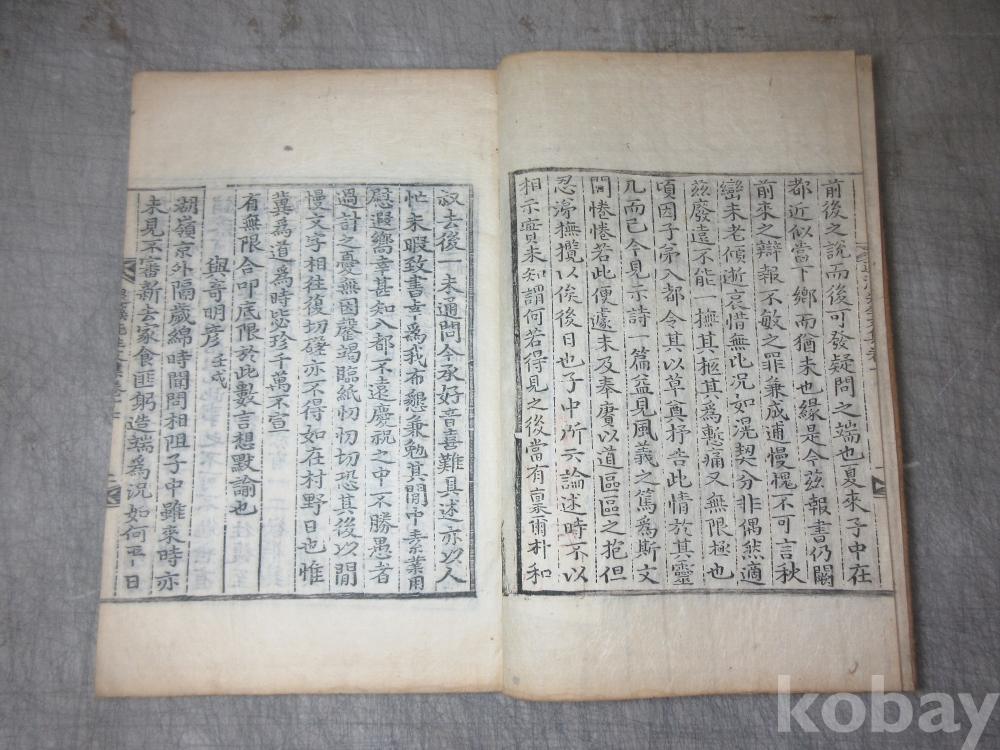 前後之說而後可發疑問之端也夏來子中在
都近似當下鄉而猶未也緣是今玆報書仍闕
前來之辯報不敏之罪兼成逋慢愧不可言秋
巒未老傾逝哀惜無比况如滉契分非偶然適
玆廢遠不能一撫其柩其爲慙痛又無限極也
頃因子弟入都令其以草具抒告此情於其靈
几而已今見示詩一篇益見風義之篤爲斯文
間惓惓若此便遽未及奉賡以道區區之抱但
忍渧撫攬以俟後日也子中所云論述時不以
相示實未知謂何若得見之後當有稟爾朴和
叔去後一未通問今承好音喜難具述亦以人
忙未暇致書去爲我布懇兼勉其閒中素業用
慰遐嚮幸甚知入都不遠慶祝之中不勝愚者
過計之憂無因罄竭臨紙忉忉切恐其後以閒
慢文字相往復切磋亦不得如在村野日也惟
冀爲道爲時毖珍千萬不宣
有無限合叩底限於此數言想默諭也
與奇明彦 壬戌
湖嶺京外隔歲綿時聞問相阻子中雖來時亦
未見不審新去家食匪躬造端爲况如何平日
kobay